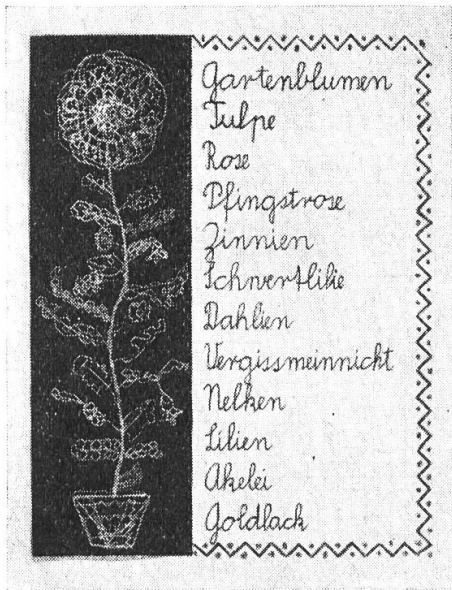 Gartenblumen
Tulpe
Rose
Pfingstrose
Zinnien
Schwertlilie
Dahlien
Vergissmeinnicht
Nelken
Lilien
Akelei
Goldlack